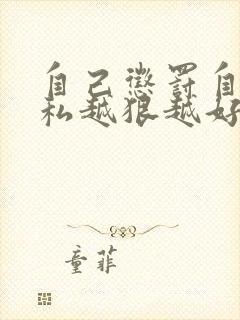 自己惩罚自
私越狠越好
童菲